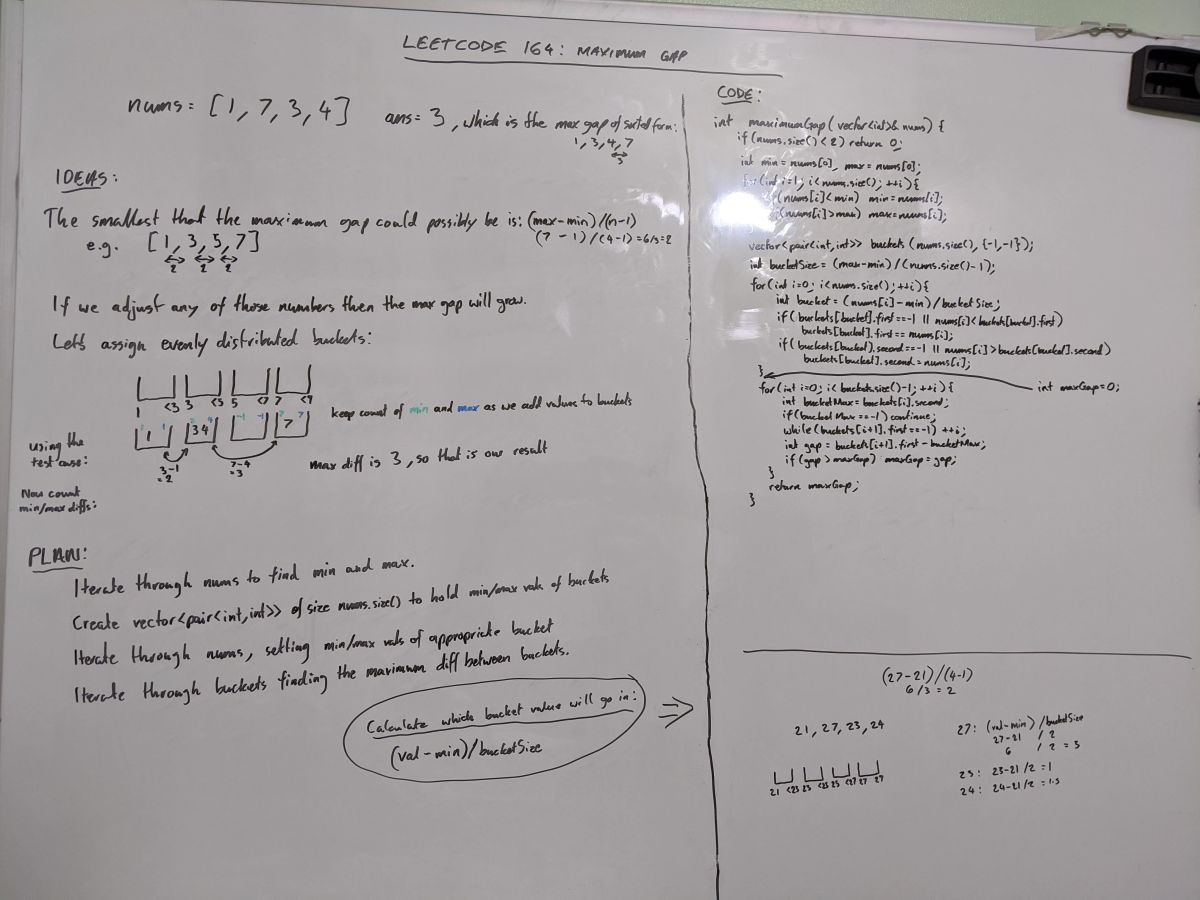 LEETCODE 164: MAXIMUM GAP
nums = [1, 7, 3, 4]
ans = 3, which is the max gap of sorted form:
1, 3, 4, 7
3
IDEAS:
The smallest that the maximum gap could possibly be is: (max-min)/(n-1)
(7 - 1)/(4-1) = 6/3 = 2
e.g. [1, 3, 5, 7]
2 2 2
If we adjust any of those numbers then the max gap will grow.
Lets assign evenly distributed buckets:
1 <3 3 <5 5 <7 7 <9
keep count of min and max as we add values to buckets
using the
test case:
1 34 7
-1 -1
3-1
=2
7-4
=3
max diff is 3, so that is our result
Now count
min/max diffs:
PLAN:
Iterate through nums to find min and max.
Create vector<pair<int,int>> of size nums.size() to hold min/max vals of buckets
Iterate through nums, setting min/max vals of appropriate bucket
Iterate through buckets finding the maximum diff between buckets.
Calculate which bucket value will go in:
(val-min)/bucketSize
CODE:
int maximumGap(vector<int>& nums) {
if(nums.size()<2) return 0;
int min = nums[0], max = nums[0];
for(int i=1; i<nums.size(); ++i){
(nums[i]<min) min=nums[i];
(nums[i]>max) max=nums[i];
vector<pair<int,int>> buckets (nums.size(), {-1,-1});
int bucketSize = (max-min)/(nums.size()-1);
for(int i=0; i<nums.size(); ++i){
int bucket = (nums[i]-min)/bucketSize;
if(buckets[bucket].first==-1 || nums[i]<buckets[bucket].first)
buckets[bucket].first == nums[i];
if(buckets[bucket].second==-1 || nums[i]>buckets[bucket].second)
buckets[bucket].second=nums[i];
}
for(int i=0; i<buckets.size()-1; ++i){
int maxGap=0;
int bucketMax=buckets[i].second;
if(bucketMax==-1) continue;
while(buckets[i+1].first==-1) ++i;
int gap = buckets[i+1].first-bucketMax;
if(gap>maxGap) maxGap=gap;
}
return maxGap;
}
(27-21)/(4-1)
6/3 = 2
21, 27, 23, 24
21 <23 23 <25 25 <27 27 27
27: (val-min)/bucketSize
27-21 / 2
6 / 2 = 3
23: 23-21/2 = 1
24: 24-21/2 = 1.5